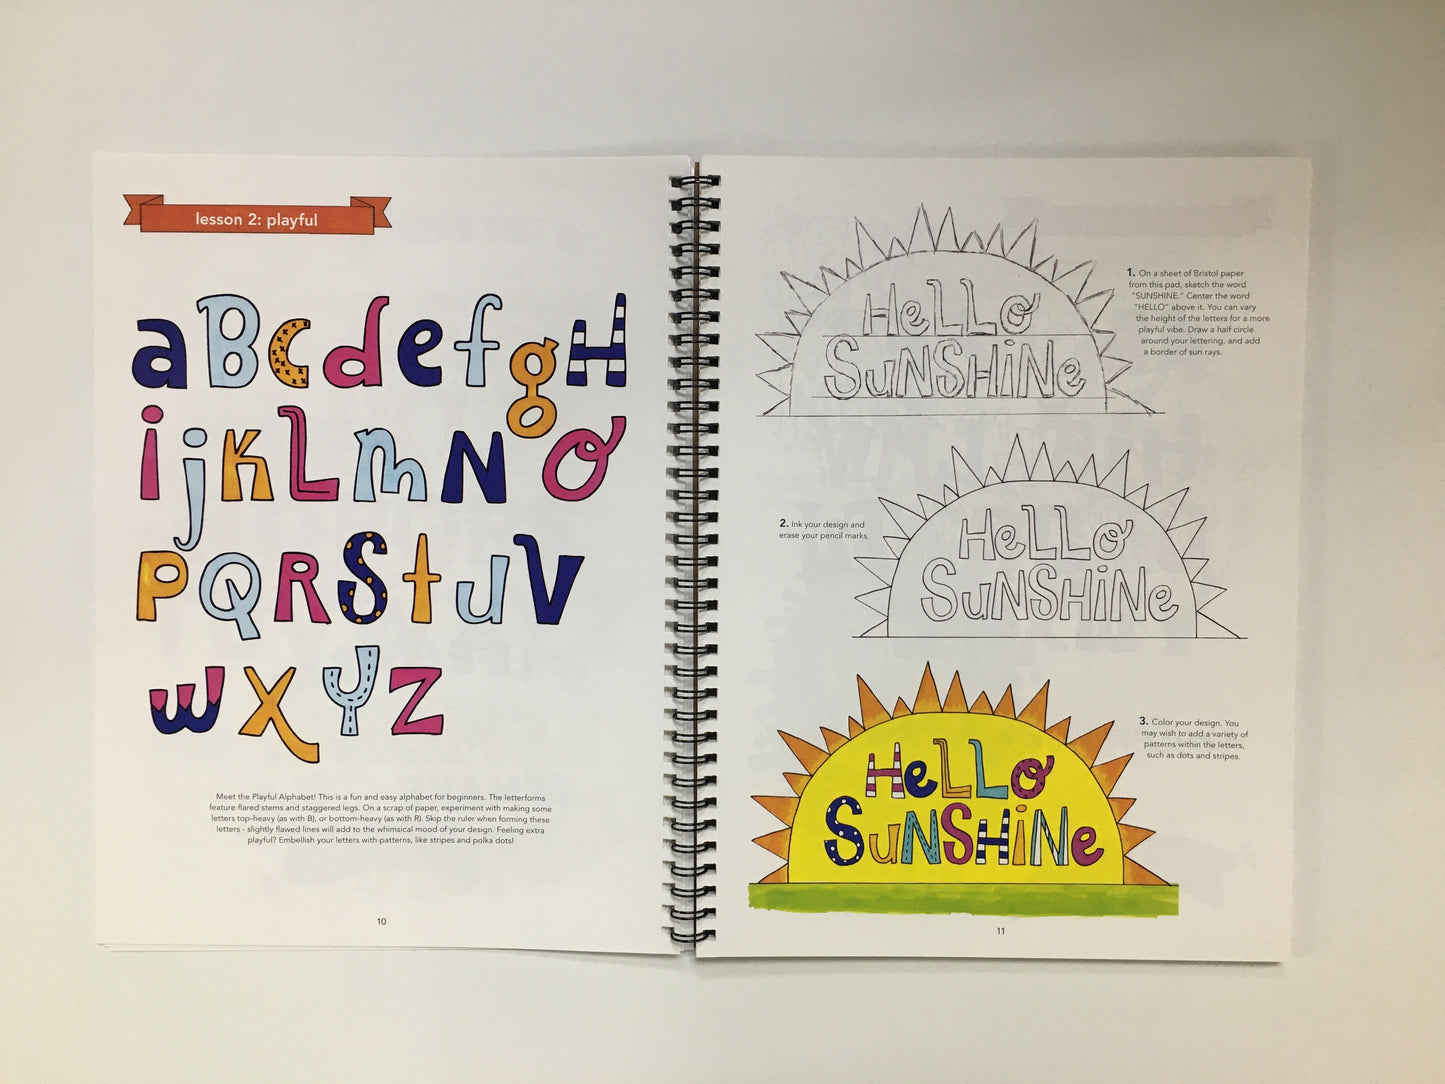 lesson 2: playful
aBCdefgH
ijKLmNO
PQRStuV
wXYZ
Meet the Playful Alphabet! This is a fun and easy alphabet for beginners. The letterforms
feature flared stems and staggered legs. On a scrap of paper, experiment with making some
letters top-heavy (as with B), or bottom-heavy (as with R). Skip the ruler when forming these
letters - slightly flawed lines will add to the whimsical mood of your design. Feeling extra
playful? Embellish your letters with patterns, like stripes and polka dots!
10
HeLLO
SuNSHiNe
1. On a sheet of Bristol paper
from this pad, sketch the word
"SUNSHINE." Center the word
"HELLO" above it. You can vary
the height of the letters for a more
playful vibe. Draw a half circle
around your lettering, and add
a border of sun rays.
HeLLO
SuNSHiNe
2. Ink your design and
erase your pencil marks.
HeLLO
SuNSHiNe
3. Color your design. You
may wish to add a variety of
patterns within the letters,
such as dots and stripes.
11